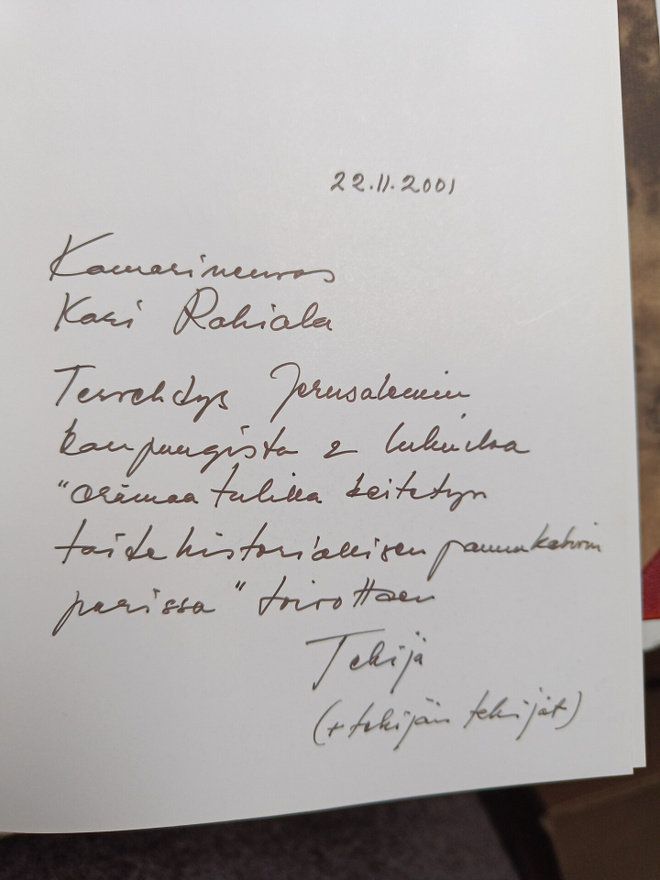 22.11.2001
Kamarineuvos
Kari Rahiala
Tervehdys Jerusalemin
kaupungista & lukuiloa
"erämaa tulilla keitetyn
taidehistoriallisen pannukahvin
parissa" toivottaen
Tekijä
(+ tekijän tekijät)